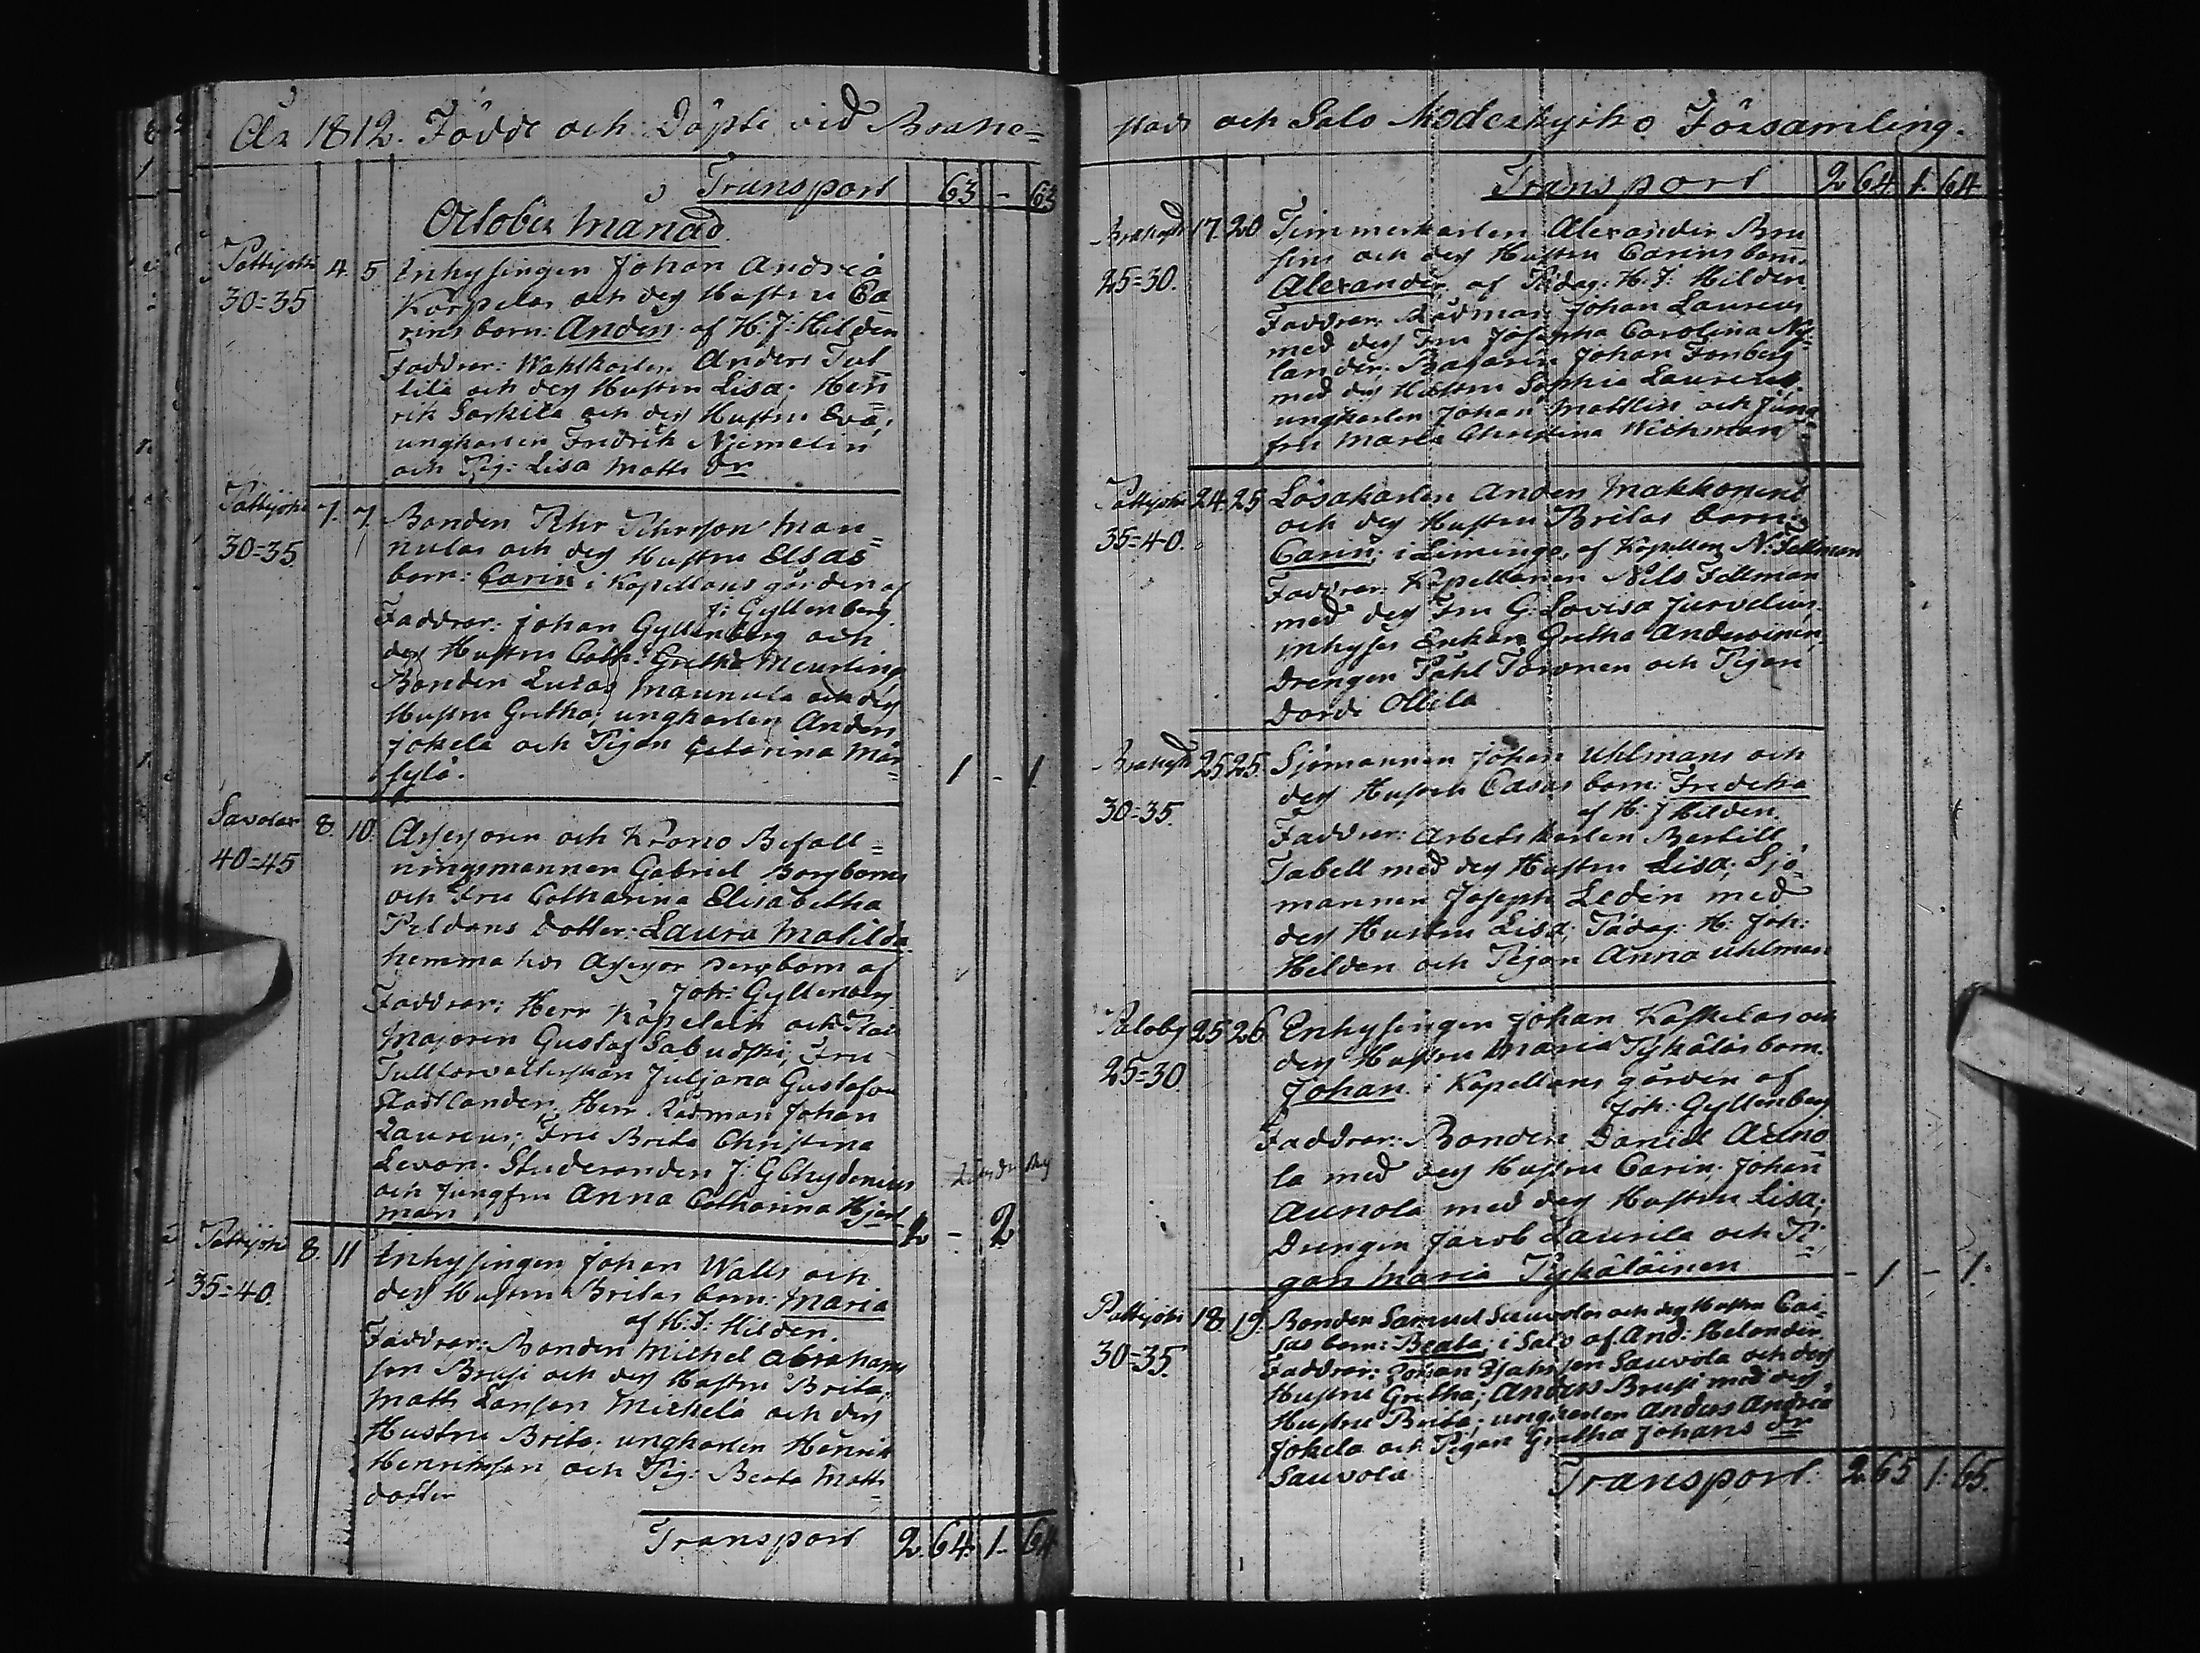 År 1812. Födde och Döpte vid Brahe=
Transport 63 - 63
October Månad
Pattijoki 4. 5. Inhysingen Johan Andreæ
30=35 Korpelas och dess Hustru Ca
rins barn: Anders. af H: J: Hilden
Faddrar: Anders
lila och dess Hustru Lisa; Hen
rik Sarkila och dess Hustru Eva;
ungkarlen Fredrik Njemelin
och Pig: Lisa Matts dr
Pattijoki 7. 7. Bonden Pehr Pehrsson Man=
30=35. nulas och dess Hustru Elsas
barn: Carin i Kapellans gården af
J: Gyllenberg.
Faddrar: Johan Gyllenberg och
dess Hustru Cath: Gretha Meurling
Bonden Lucas Maunula och dess
Hustru Gretha; ungkarlen Anders
Jokela och Pigan Catarina Mär
sylä. 1 - 1
Savolax 8. 10. Assessoren och Krono Befall=
40=45 ningsmannen Gabriel Borgboms
och Fru Catharina Elisabetha
Peldans Dotter: Laura Matilda
hemma hos Assessor Borgbom af
Joh: Gyllenberg
Faddrar: Herr
Majoren Gustaf Fru
Tullförvalterskan Juljana Gustafva
Herr Rådman Johan
Laureus; Fru Brita Christina
Levon. Studeranden J: G Chydenius
och Jungfru Anna Catharina Hjert
man. 2 - 2
Pattijoki 8. 11 Inhysingen Johan Walls och
35=40. dess Hustru Britas barn: Maria
af H: J: Hilden.
Faddrar: Bonden Michel Abrahams
son Brusi och dess Hustru Brita;
Matts Larsson Michelä och dess
Hustru Brita. ungkarlen Henrik
Henriksson och Pig: Beata Matts
dotter
Transport 2. 64. 1- 64
stads och Salo Moderkyrko Församling.
Transport 2 64. 1. 64
Brahestd 17. 20 Timmerkarlen Alexander Bru
25=30. sins och dess Hustru Carins barn:
Alexander af Pädag: H: J: Hilden.
Faddrar: Rådman Johan Laureus
med dess Fru Josepha Carolina Ny
lander; Johan Forsberg
med dess Hustru Sophia Laureus.
ungkarlen Johan Mattlin och Jung
fru Maria Christina Wichman
Pattijoki 24. 25 Lösakarlen Anders Makkonens
35=40. och dess Hustru Britas barn:
Carin; i Limingo, af Kapellan N: Fellman
Faddrar: Kapellanen Nils Fellman
med dess Fru G: Lovisa Jurvelius,
inhyses Enkan Gretha
Drengen Påhl Toronen och Pigan
Dordi Ollila
Brahestd 25. 25. Sjömannen Johan Uhlmans och
30=35. dess Hustru Casas barn: Fredrika
af H: J Hilden.
Faddrar: Arbetskarlen Bertill
Tabell med dess Hustru Lisa; Sjö
mannen Joseph Ledin med
dess Hustru Lisa; Pädag. H: Joh:
Hilden och Pigan Anna Uhlman
Paloby 25. 26. Enhysingen Johan Kaskelas och
25=30 dess Hustru Maria Tykäläs barn.
Johan. i Kapellans gården af
Joh: Gyllenberg
Faddrar: Bonden Daniel Auno
la med dess Hustru Carin. Johan
Aunola med dess Hustru Lisa;
Drengen Jacob Laurila och Pi
gan Maria Tykäläinen - 1 - 1.
Pattijoki 18. 19. Bonden Samuel Sauvolas och dess Hustru Cai
30=35. sas barn: Beata; i Salo af And: Helander.
Faddrar: Johan Sauvola och dess
Hustru Gretha; Anders Brusi med dess
Hustru Brita; ungkarlen Anders Andreæ
Jokela och Pigan Gretha Johans dr
Sauvola
Transport. 2 65 1. 65.